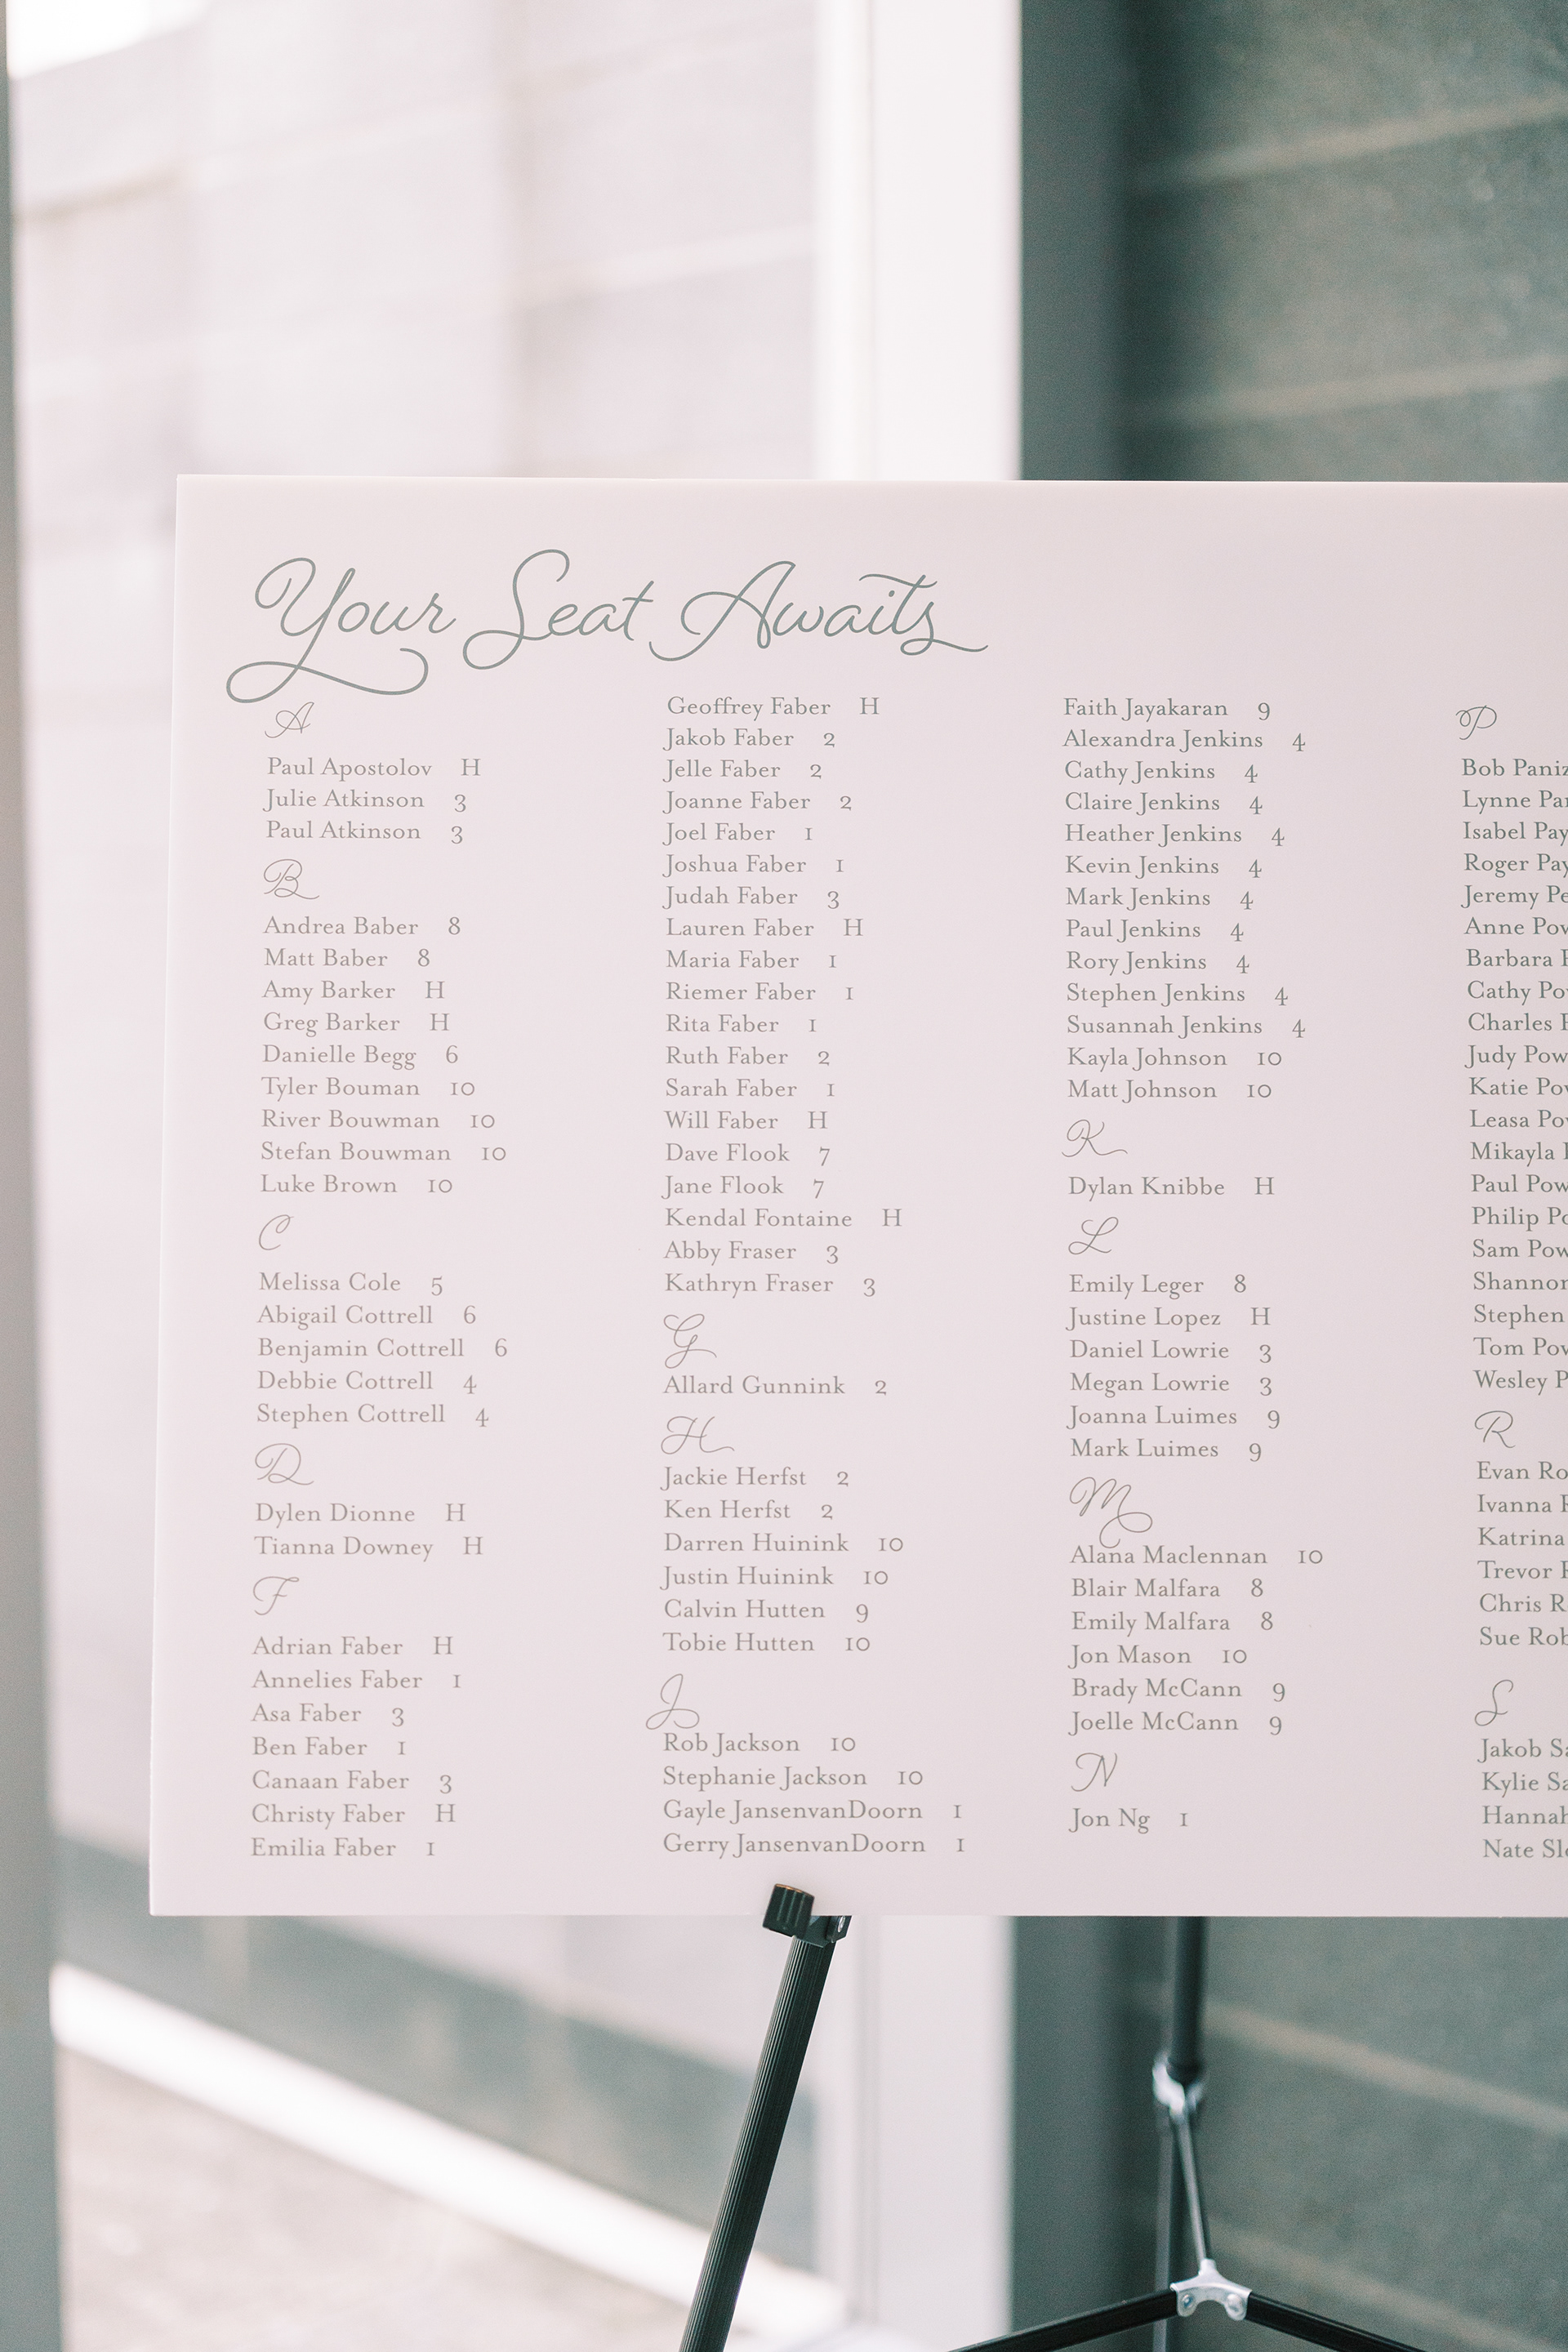 Your Seat Awaits
A
Paul Apostolov H
Julie Atkinson 3
Paul Atkinson 3
B
Andrea Baber 8
Matt Baber 8
Amy Barker H
Greg Barker H
Danielle Begg 6
Tyler Bouman 10
River Bouwman 10
Stefan Bouwman 10
Luke Brown 10
C
Melissa Cole 5
Abigail Cottrell 6
Benjamin Cottrell 6
Debbie Cottrell 4
Stephen Cottrell 4
D
Dylen Dionne H
Tianna Downey H
F
Adrian Faber H
Annelies Faber 1
Asa Faber 3
Ben Faber 1
Canaan Faber 3
Christy Faber H
Emilia Faber 1
Geoffrey Faber H
Jakob Faber 2
Jelle Faber 2
Joanne Faber 2
Joel Faber 1
Joshua Faber 1
Judah Faber 3
Lauren Faber H
Maria Faber 1
Riemer Faber 1
Rita Faber 1
Ruth Faber 2
Sarah Faber 1
Will Faber H
Dave Flook 7
Jane Flook 7
Kendal Fontaine H
Abby Fraser 3
Kathryn Fraser 3
G
Allard Gunnink 2
H
Jackie Herfst 2
Ken Herfst 2
Darren Huinink 10
Justin Huinink 10
Calvin Hutten 9
Tobie Hutten 10
J
Rob Jackson 10
Stephanie Jackson 10
Gayle JansenvanDoorn 1
Gerry JansenvanDoorn 1
Faith Jayakaran 9
Alexandra Jenkins 4
Cathy Jenkins 4
Claire Jenkins 4
Heather Jenkins 4
Kevin Jenkins 4
Mark Jenkins 4
Paul Jenkins 4
Rory Jenkins 4
Stephen Jenkins 4
Susannah Jenkins 4
Kayla Johnson 10
Matt Johnson 10
K
Dylan Knibbe H
L
Emily Leger 8
Justine Lopez H
Daniel Lowrie 3
Megan Lowrie 3
Joanna Luimes 9
Mark Luimes 9
M
Alana Maclennan 10
Blair Malfara 8
Emily Malfara 8
Jon Mason 10
Brady McCann 9
Joelle McCann 9
N
Jon Ng 1
P
Bob
Lynne
Isabel
Roger
Jeremy
Anne
Barbara
Cathy
Charles
Judy
Katie
Leasa
Mikayla
Paul
Philip
Sam
Shannon
Stephen
Tom
Wesley
R
Evan
Ivanna
Katrina
Trevor
Chris
Sue
S
Jakob
Kylie
Hannah
Nate